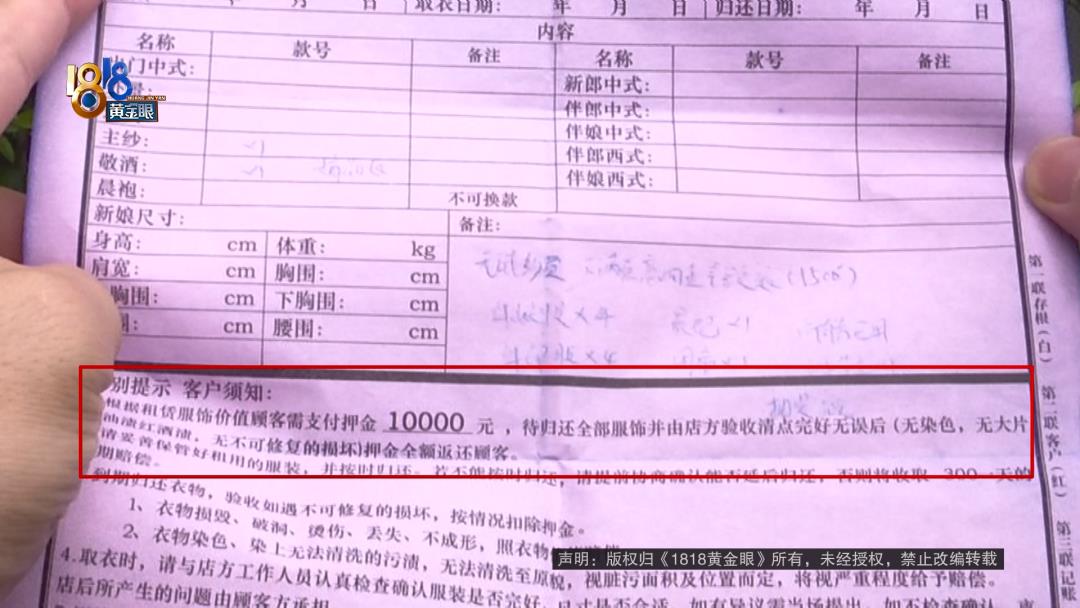 年 月 日 取衣日期: 年 月 日 归还日期: 年 月 日
内容
名称 款号 备注 名称 款号 备注
出门中式: 新郎中式:
伴郎中式:
伴娘中式:
主纱: 伴郎西式:
敬酒: 伴娘西式:
晨袍: 不可换款
新娘尺寸: 备注:
身高: cm 体重: kg
肩宽: cm 胸围: cm
胸围: cm 下胸围: cm
围: cm 腰围: cm
别提示 客户须知:
根据租赁服饰价值顾客需支付押金 10000 元，待归还全部服饰并由店方验收清点完好无误后(无染色，无大片
油渍红酒渍，无不可修复的损坏)押金全额返还顾客。
请妥善保管好租用的服装，并按时归还。若不能按时归还，请提前协商确认能否延后归还，否则将收取 300 一天的
期赔偿。
到期归还衣物，验收如遇不可修复的损坏，按情况扣除押金。
1、衣物损毁、破洞、烫伤、丢失、不成形，照衣物
2、衣物染色、染上无法清洗的污渍，无法清洗至原貌，视脏污面积及位置而定，将视严重程度给予赔偿。
4.取衣时，请与店方工作人员认真检查确认服装是否完好，尺寸是否合适，如有异议需当场提出，如不检查确认，离
店后所产生的问题由顾客方承担
第一联存根(白)
第二联客户(红)
第三联记账
1818
HUANG JIN YAN
黄金眼
声明：版权归《1818黄金眼》所有，未经授权，禁止改编转载